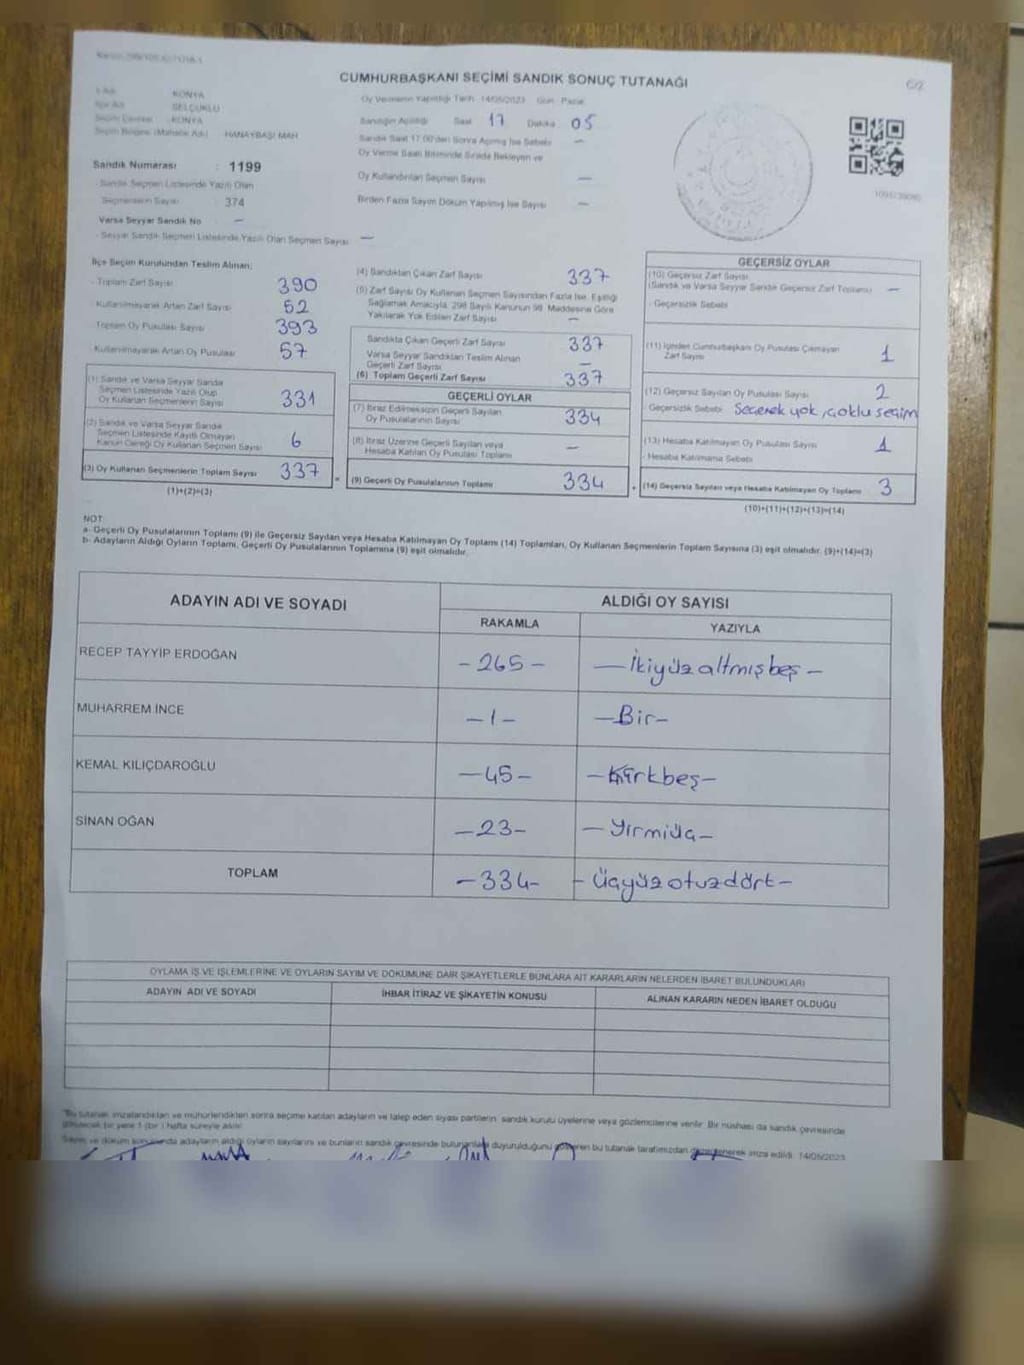 CUMHURBAŞKANI SEÇİMİ SANDIK SONUÇ TUTANAĞI
C/2
KONYA
SELÇUKLU
KONYA
HANAYBAŞI MAH
Oy Vermenin Yapıldığı Tarih 14/05/2023 Gün Pazar
Sandığın Açıldığı Saat 17 Dakika 05
Sandık Saat 17.00'den Sonra Açılmış İse Sebebi —
Oy Verme Saati Bitiminde Sırada Bekleyen ve
Oy Kullandırılan Seçmen Sayısı —
Birden Fazla Sayım Döküm Yapılmış İse Sayısı —
Sandık Numarası : 1199
Sandık Seçmen Listesinde Yazılı Olan
Seçmenlerin Sayısı : 374
Varsa Seyyar Sandık No —
- Seyyar Sandık Seçmen Listesinde Yazılı Olan Seçmen Sayısı —
İlçe Seçim Kurulundan Teslim Alınan:
- Toplam Zarf Sayısı 390
- Kullanılmayarak Artan Zarf Sayısı 52
- Toplam Oy Pusulası Sayısı 393
- Kullanılmayarak Artan Oy Pusulası 57
(1) Sandık ve Varsa Seyyar Sandık
Seçmen Listesinde Yazılı Olup
Oy Kullanan Seçmenlerin Sayısı 331
(2) Sandık ve Varsa Seyyar Sandık
Seçmen Listesinde Kayıtlı Olmayan
Kanun Gereği Oy Kullanan Seçmen Sayısı 6
(3) Oy Kullanan Seçmenlerin Toplam Sayısı 337
(1)+(2)=(3)
(4) Sandıktan Çıkan Zarf Sayısı 337
(5) Zarf Sayısı Oy Kullanan Seçmen Sayısından Fazla İse, Eşitliği
Sağlamak Amacıyla, 298 Sayılı Kanunun 98. Maddesine Göre
Yakılarak Yok Edilen Zarf Sayısı —
Sandıkta Çıkan Geçerli Zarf Sayısı 337
Varsa Seyyar Sandıktan Teslim Alınan
Geçerli Zarf Sayısı —
(6) Toplam Geçerli Zarf Sayısı 337
GEÇERLİ OYLAR
(7) İtiraz Edilmeksizin Geçerli Sayılan
Oy Pusulalarının Sayısı 334
(8) İtiraz Üzerine Geçerli Sayılan veya
Hesaba Katılan Oy Pusulası Toplamı —
(9) Geçerli Oy Pusulalarının Toplamı 334
GEÇERSİZ OYLAR
(10) Geçersiz Zarf Sayısı
(Sandık ve Varsa Seyyar Sandık Geçersiz Zarf Toplamı) —
- Geçersizlik Sebebi
(11) İçinden Cumhurbaşkanı Oy Pusulası Çıkmayan
Zarf Sayısı 1
(12) Geçersiz Sayılan Oy Pusulası Sayısı 2
- Geçersizlik Sebebi Seçerek yok, çoklu seçim
(13) Hesaba Katılmayan Oy Pusulası Sayısı 1
- Hesaba Katılmama Sebebi
(14) Geçersiz Sayılan veya Hesaba Katılmayan Oy Toplamı 3
(10)+(11)+(12)+(13)=(14)
NOT:
a- Geçerli Oy Pusulalarının Toplamı (9) ile Geçersiz Sayılan veya Hesaba Katılmayan Oy Toplamı (14) Toplamları, Oy Kullanan Seçmenlerin Toplam Sayısına (3) eşit olmalıdır. (9)+(14)=(3)
b- Adayların Aldığı Oyların Toplamı, Geçerli Oy Pusulalarının Toplamına (9) eşit olmalıdır.
ADAYIN ADI VE SOYADI
ALDIĞI OY SAYISI
RAKAMLA YAZIYLA
RECEP TAYYİP ERDOĞAN -265- -İkiyüzaltmışbeş-
MUHARREM İNCE -1- -Bir-
KEMAL KILIÇDAROĞLU -45- -Kırkbeş-
SİNAN OĞAN -23- -Yirmiüç-
TOPLAM -334- -Üçyüzotuzdört-
OYLAMA İŞ VE İŞLEMLERİNE VE OYLARIN SAYIM VE DÖKÜMÜNE DAİR ŞİKAYETLERLE BUNLARA AİT KARARLARIN NELERDEN İBARET BULUNDUKLARI
ADAYIN ADI VE SOYADI İHBAR İTİRAZ VE ŞİKAYETİN KONUSU ALINAN KARARIN NEDEN İBARET OLDUĞU
*Bu tutanak imzalandıktan ve mühürlendikten sonra seçime katılan adayların ve talep eden siyasi partilerin sandık kurulu üyelerine veya gözlemcilerine verilir. Bir nüshası da sandık çevresinde
görülecek bir yere 1 (bir) hafta süreyle asılır.
Sayım ve döküm sonucunda adayların aldığı oyların sayılarını ve bunların sandık çevresinde bulunanlara duyurulduğunu gösteren bu tutanak tarafımızdan düzenlenerek imza edildi. 14/05/2023